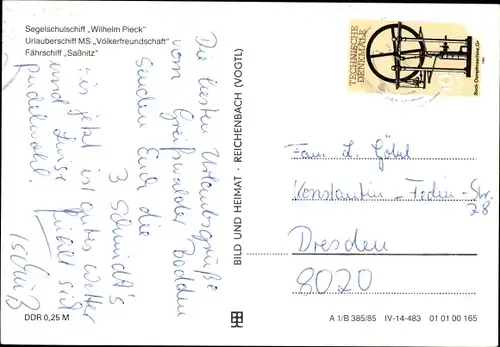 Segelschulschiff „Wilhelm Pieck"
Urlauberschiff MS „Völkerfreundschaft"
Fährschiff „Saßnitz"
Die besten Urlaubsgrüße
vom Greifswalder Bodden
senden Euch die
3 Schmidt's
jetzt ist gutes Wetter
und fühlt sich
pudelwohl.
BILD UND HEIMAT · REICHENBACH (VOGTL)
TECHNISCHE
DENKMALE
Bock-Dampfmaschine, Gr
10
Fam. L. Göbel
Konstantin-Fedin-Str.
28
Dresden
8020
DDR 0,25 M
A 1/B 385/85 IV-14-483 01 01 00 165